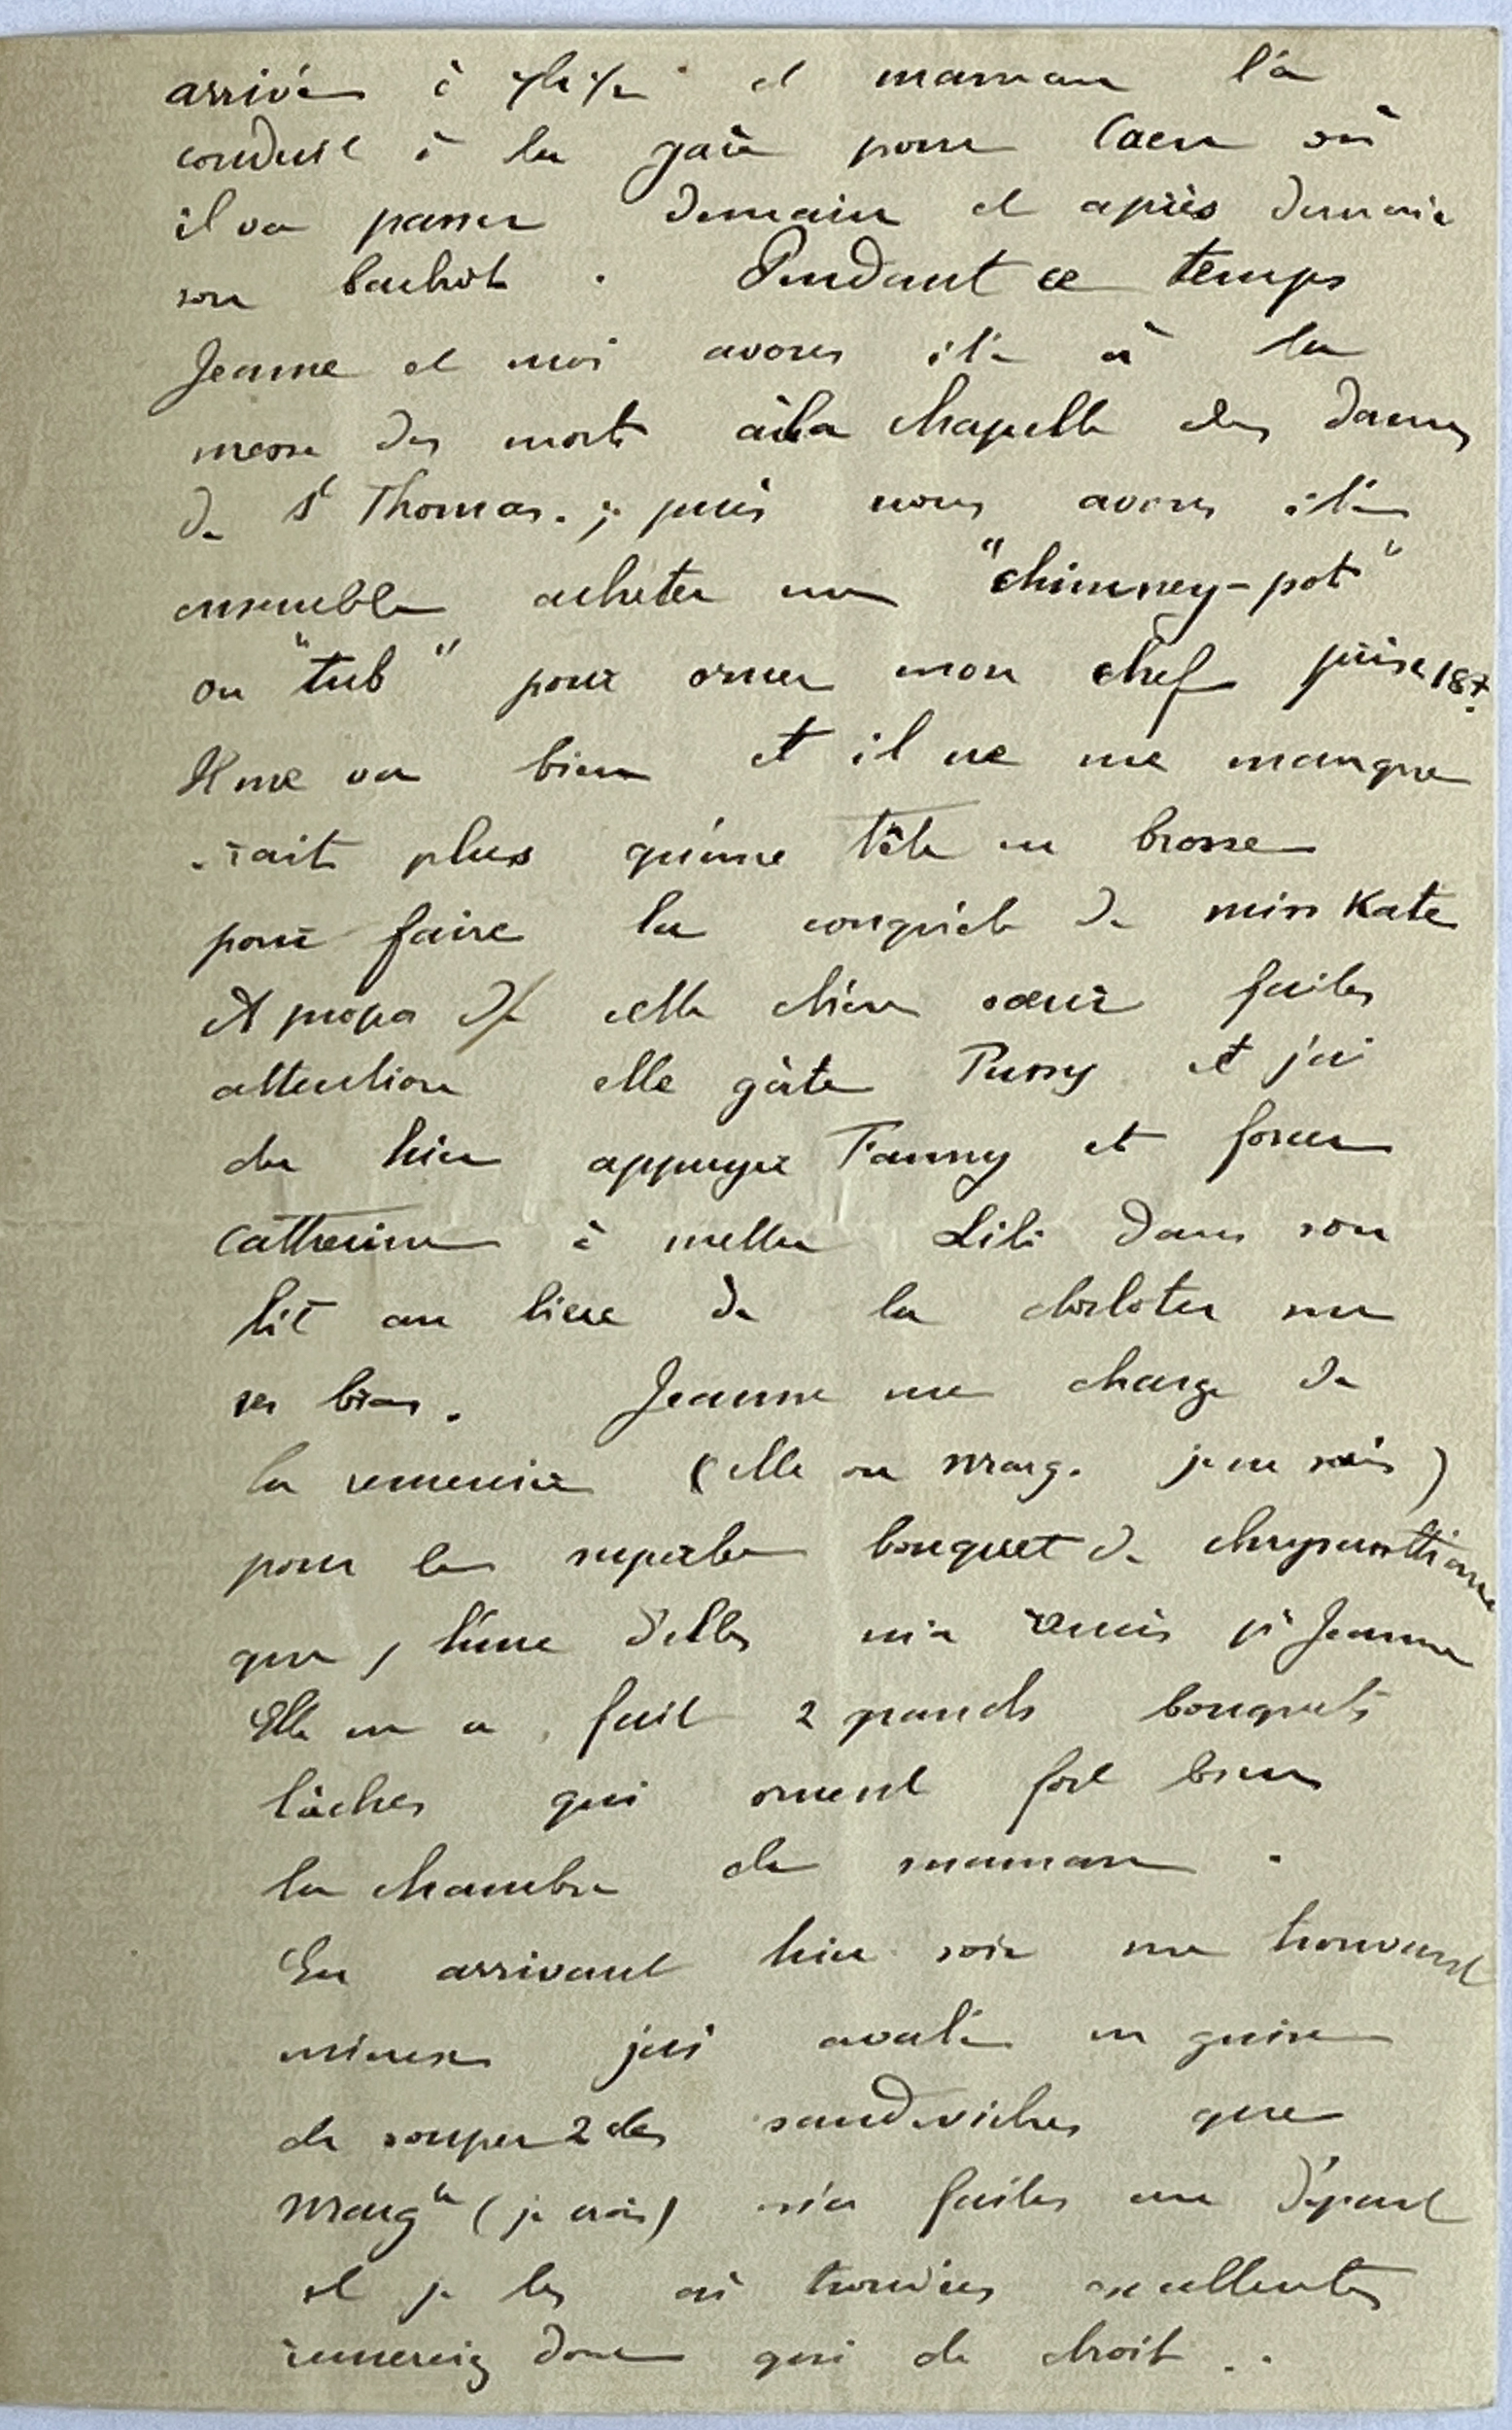 arrivé à et maman l'a
conduit à la gare pour Caen où
il va passer demain et après demain
son bachot. Pendant ce temps
Jeanne et moi avons été à la
messe des morts à la chapelle des dames
de St Thomas. ; puis nous avons été
ensemble acheter un "chimney-pot"
ou "tub" pour orner mon chef prix 18f.
Il me va bien et il ne me manque
-rait plus qu'une tête en brosse
pour faire la conquête de miss Kate
A propos d' elle chère sœur faites
attention elle gâte Pussy et j'ai
du hier appuyer Fanny et forcer
Catherine à mettre Lili dans son
lit au lieu de la dorloter sur
ses bras. Jeanne me charge de
la remercier (elle ou Marg. je ne sais)
pour le superbe bouquet de chrysanthème
que, l'une d'elles m'a remis pr Jeanne
Elle en a fait 2 grands bouquets
lâches qui ornent fort bien
la chambre de maman.
En arrivant hier soir me trouvant
j'ai avalé en guise
de souper 2 des sandwiches que
Margte (je crois) m'a faites au départ
et je les ai trouvées excellentes
remerciez donc qui de droit..